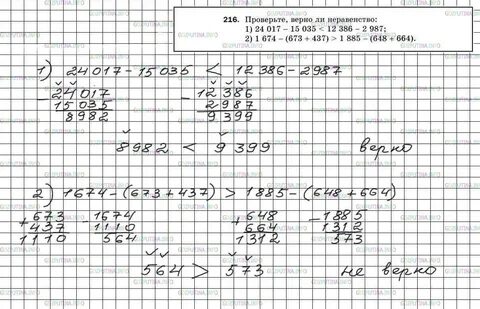 216. Проверьте, верно ли неравенство:
1) 24 017 – 15 035 < 12 386 – 2 987;
2) 1 674 – (673 + 437) > 1 885 – (648 + 664).
1) 24017 – 15035 < 12386 – 2987
– 24017 – 12386
15035 2987
8982 9399
8982 < 9399 верно
2) 1674 – (673 + 437) > 1885 – (648 + 664)
+ 673 1674 + 648 – 1885
437 1110 664 1312
1110 564 1312 573
564 > 573 не верно